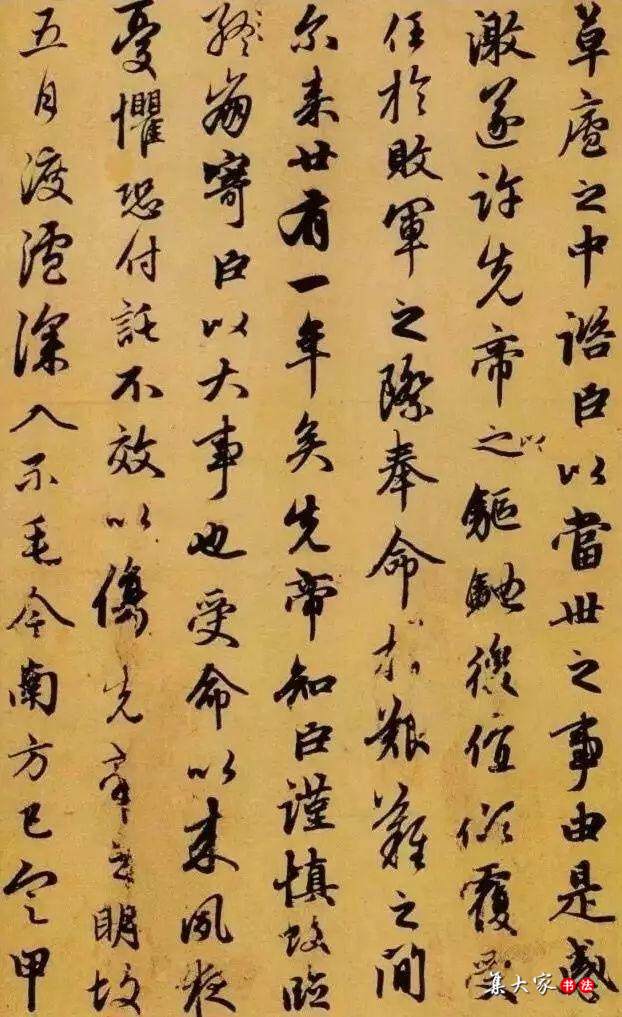 草廬之中諮臣以當世之事由是感
激遂許先帝之以驅馳後值傾覆受
任於敗軍之際奉命於艱難之間
尔来廿有一年矣先帝知臣謹慎故臨
終崩寄臣以大事也受命以来夙夜
憂懼恐付託不效以傷先帝之明故
五月渡瀘深入不毛今南方已定甲
集大家书法